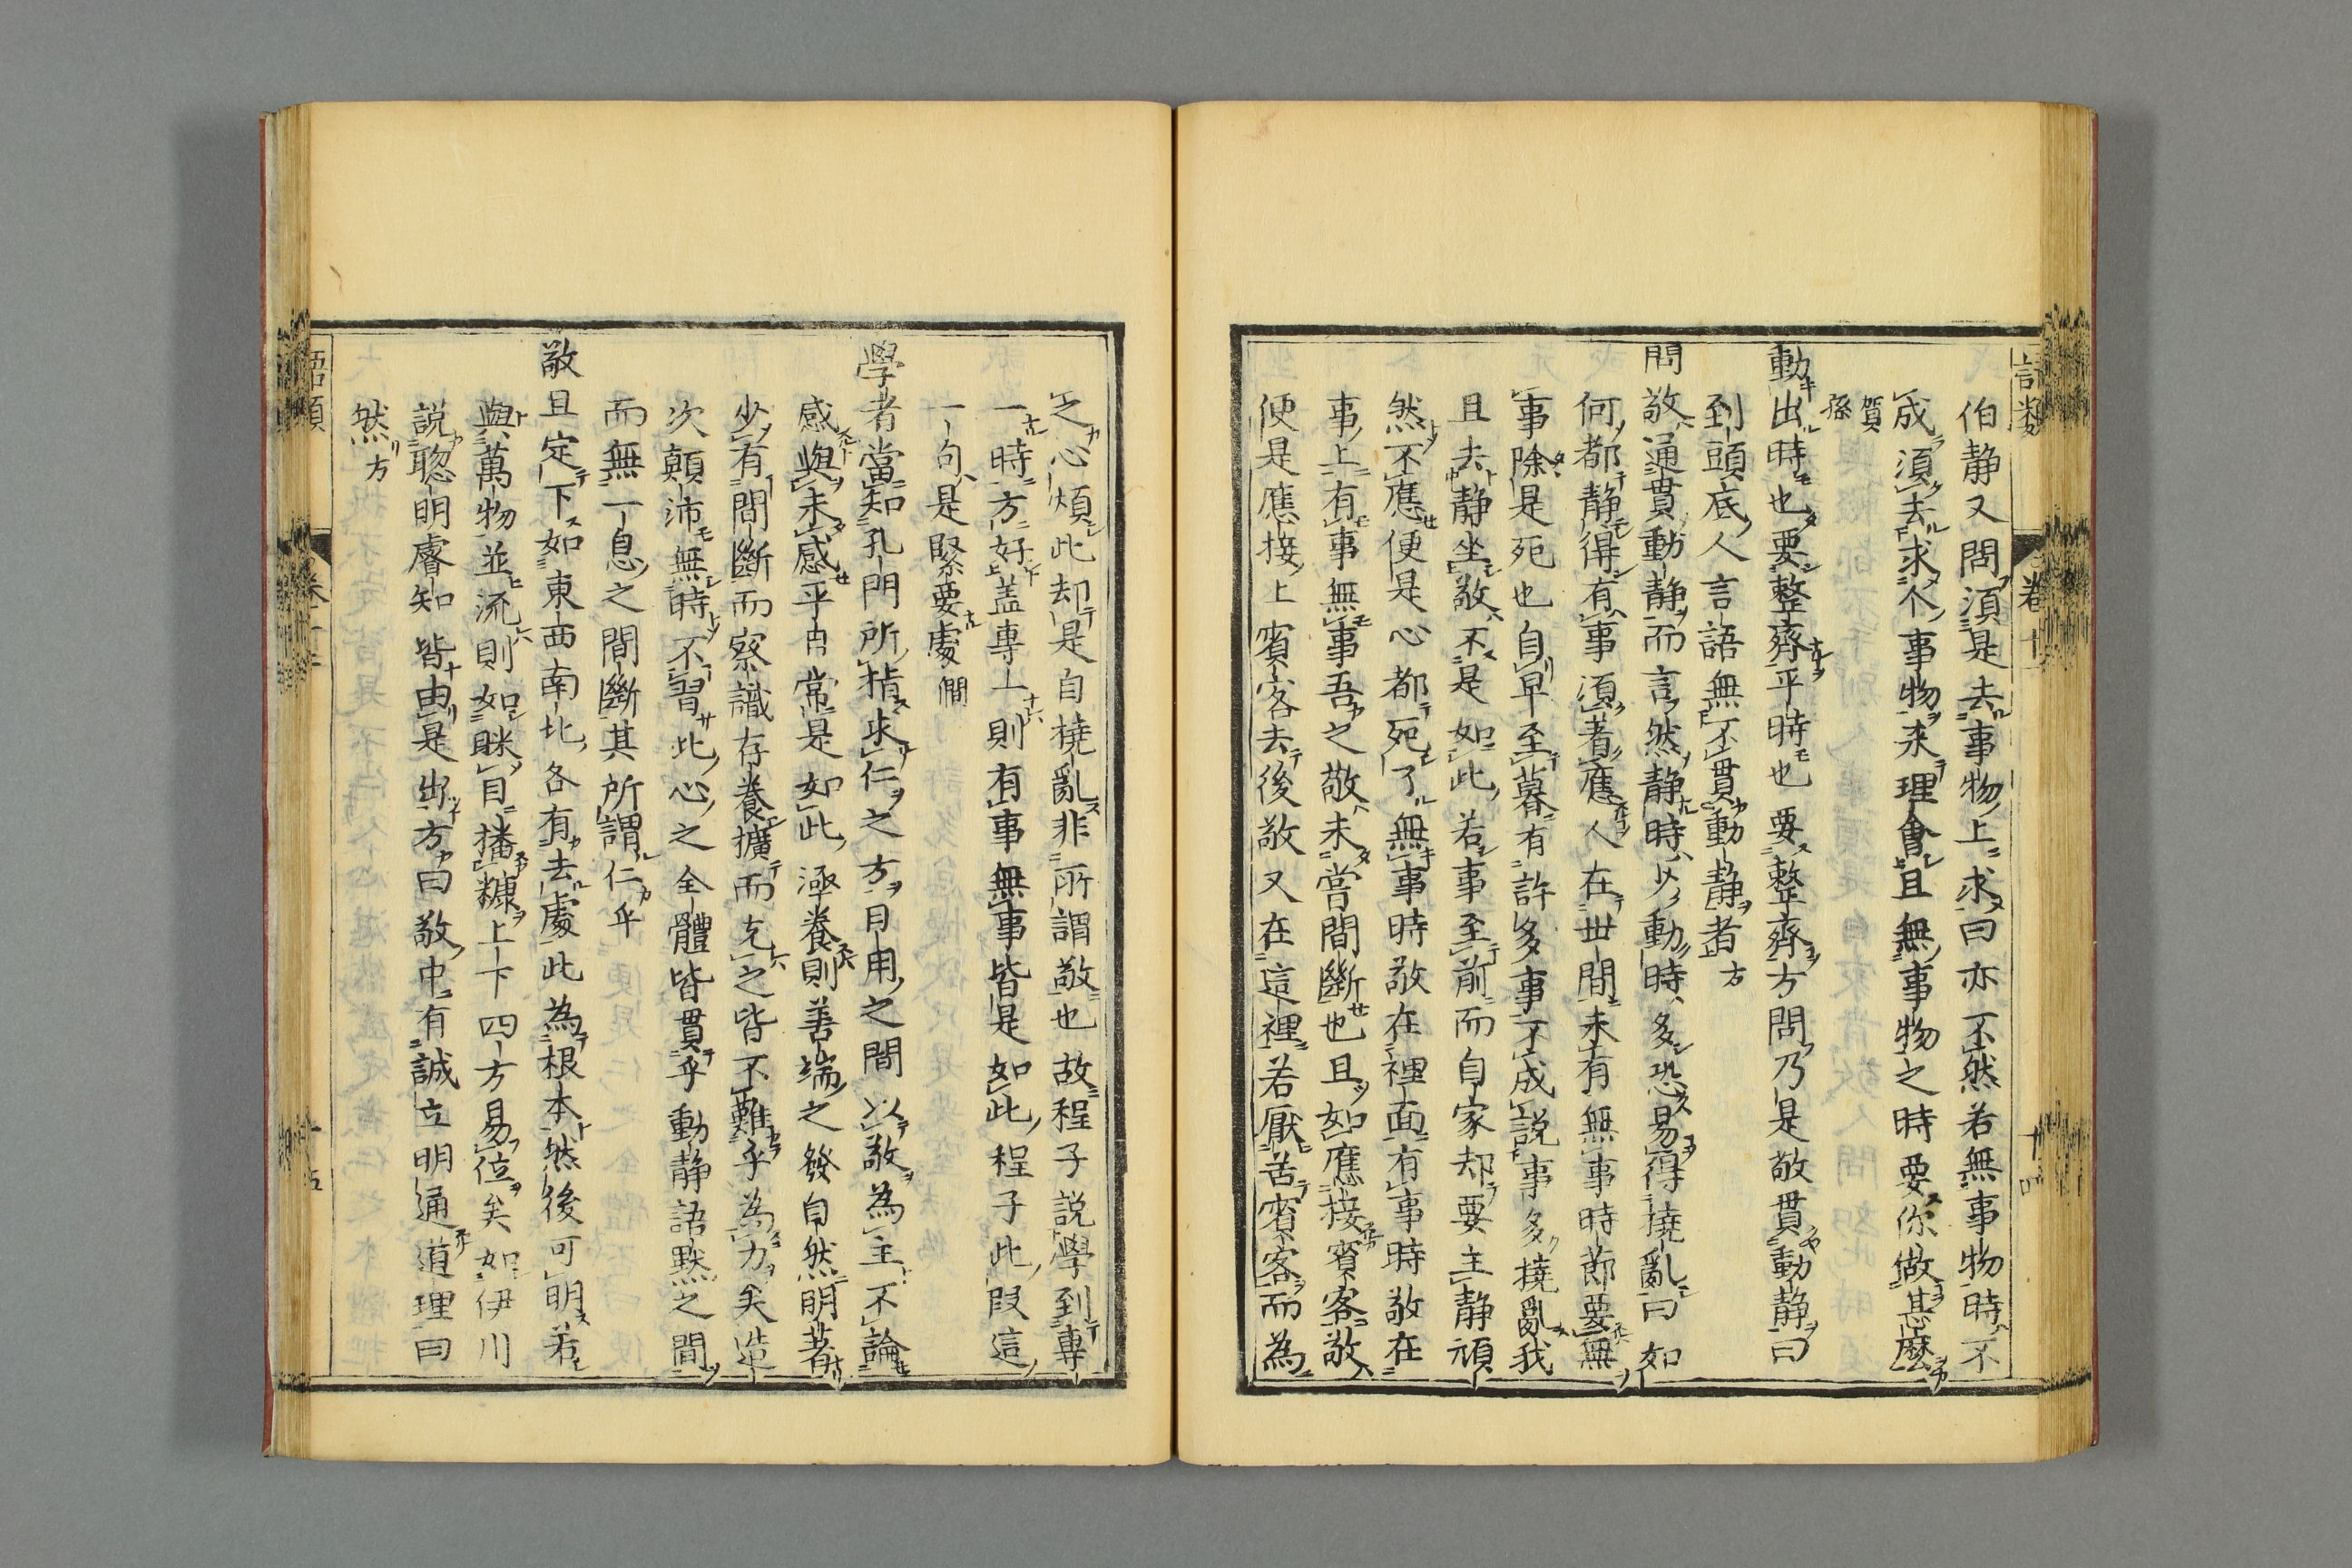 語類
卷十
伯静又問須是去事物上求曰亦不然若無事物時不
成須去求个事物來理會且無事物之時要你做甚麽
賀孫
動出時也要整齊平時也要整齊方問乃是敬貫動静曰
到頭底人言語無不貫動静者方
問敬通貫動静而言然静時少動時多恐易得撓亂曰如
何都静得有事須著應人在世間未有無事時節要無
事除是死也自早至暮有許多事不成說事多撓亂我
且去静坐敬不是如此若事至前而自家却要主静頑
然不應便是心都死了無事時敬在裡面有事時敬在
事上有事無事吾之敬未嘗間斷也且如應接賓客敬
便是應接上賓客去後敬又在這裡若厭苦賓客而為
之心煩此却是自撓亂非所謂敬也故程子說學到專
一時方好盖專一則有事無事皆是如此程子此段這
一句是緊要處僩
學者當知孔門所指求仁之方日用之間以敬為主不論
感與未感平日常是如此涵養則善端之發自然明著
少有間斷而察識存養擴而充之皆不難乎為力矣造
次顛沛無時不習此心之全體皆貫乎動静語默之間
而無一息之間斷其所謂仁乎
敬且定下如東西南北各有去處此為根本然後可明若
與萬物並流則如眯目播糠上下四方易位矣如伊川
說聦明睿知皆由是出方曰敬中有誠立明通道理曰
然方
語類